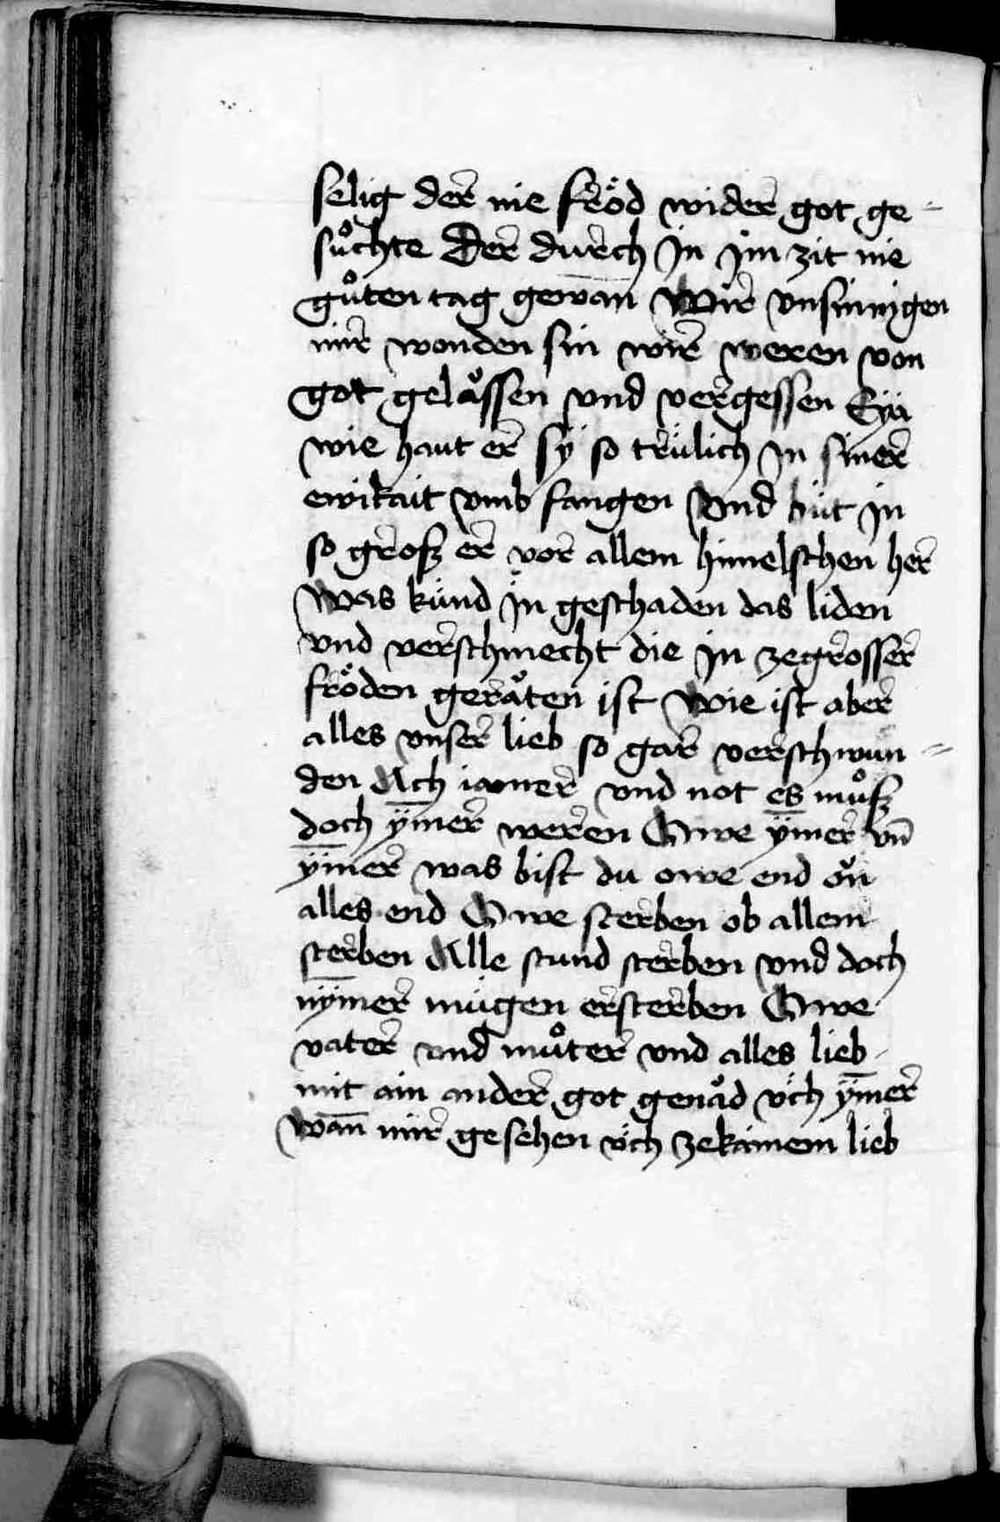 selig der nie fröd wider got ge-
suͦchte Der durch in im zit nie
guͦten tag gewan̄ Wir vnsinnigen
mir wonden sin wir weren von
got gelaͦssen vnd vergessen Eya
wie haut er sÿ so trülich in siner
ewikait vmb fangen Vnd büt in
so groſz er vor allem himelschen her
Was künd in geschaden das liden
vnd verschmecht die in zegrosser
fröden geraͦten ist Wie ist aber
alles vnser lieb so gar verschwun-
den Ach iamer vnd not es muͦſz
doch ÿm̄er weren Owe ÿm̄er vn̄
ÿm̄er was bist du owe end oͮn
alles end Owe sterben ob allem
sterben Alle stund sterben vnd doch
nÿm̄er mügen ersterben Owe
vater vnd muͦter vnd alles lieb
mit ain ander got genaͦd v̈ch ÿm̄er
wan̄ mir gesehen v̈ch zekainem lieb